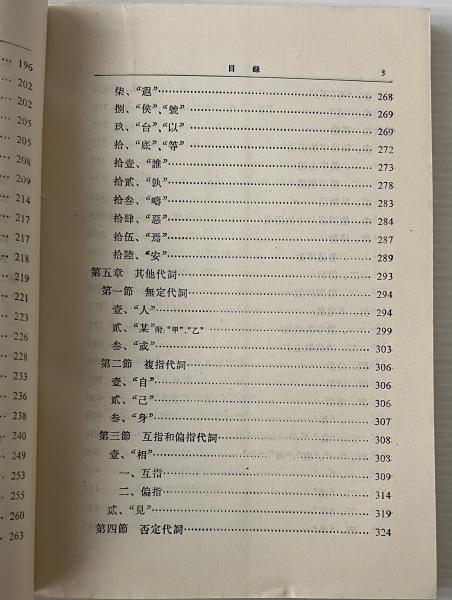 196
202
202
205
205
208
209
214
217
217
218
219
221
223
225
228
233
238
240
249
253
255
260
263
目錄 5
柒、“遐” 268
捌、“侯”、“號” 269
玖、“台”、“以” 269
拾、“底”、“等” 272
拾壹、“誰” 273
拾貳、“孰” 278
拾叁、“疇” 283
拾肆、“惡” 284
拾伍、“焉” 287
拾陸、“安” 289
第五章 其他代詞 293
第一節 無定代詞 294
壹、“人” 294
貳、“某”附：“甲”、“乙” 299
叁、“或” 303
第二節 複指代詞 306
壹、“自” 306
貳、“己” 306
叁、“身” 307
第三節 互指和偏指代詞 308
壹、“相” 308
一、互指 309
二、偏指 314
貳、“見” 319
第四節 否定代詞 324